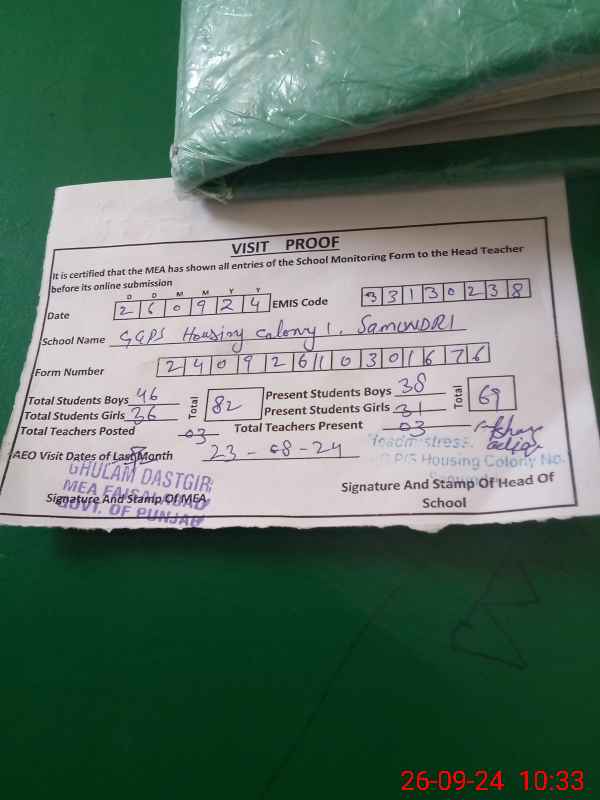 VISIT PROOF
It is certified that the MEA has shown all entries of the School Monitoring Form to the Head Teacher
before its online submission
D D M M Y Y
Date 260924 EMIS Code 33130238
School Name GGPS Housing Colony 1, SAMUNDRI
Form Number 2409261030 1676
Total Students Boys 46 Total 82 Present Students Boys 38 Total 69
Total Students Girls 36 Present Students Girls 31
Total Teachers Posted 03 Total Teachers Present 03
AEO Visit Dates of Last Month 23-08-24
Headmistress.
Housing Colony No.
GHULAM DASTGIR
MEA FAISALABAD
GOVT. OF PUNJAB
Signature And Stamp Of MEA
Signature And Stamp Of Head Of
School
26-09-24 10:33